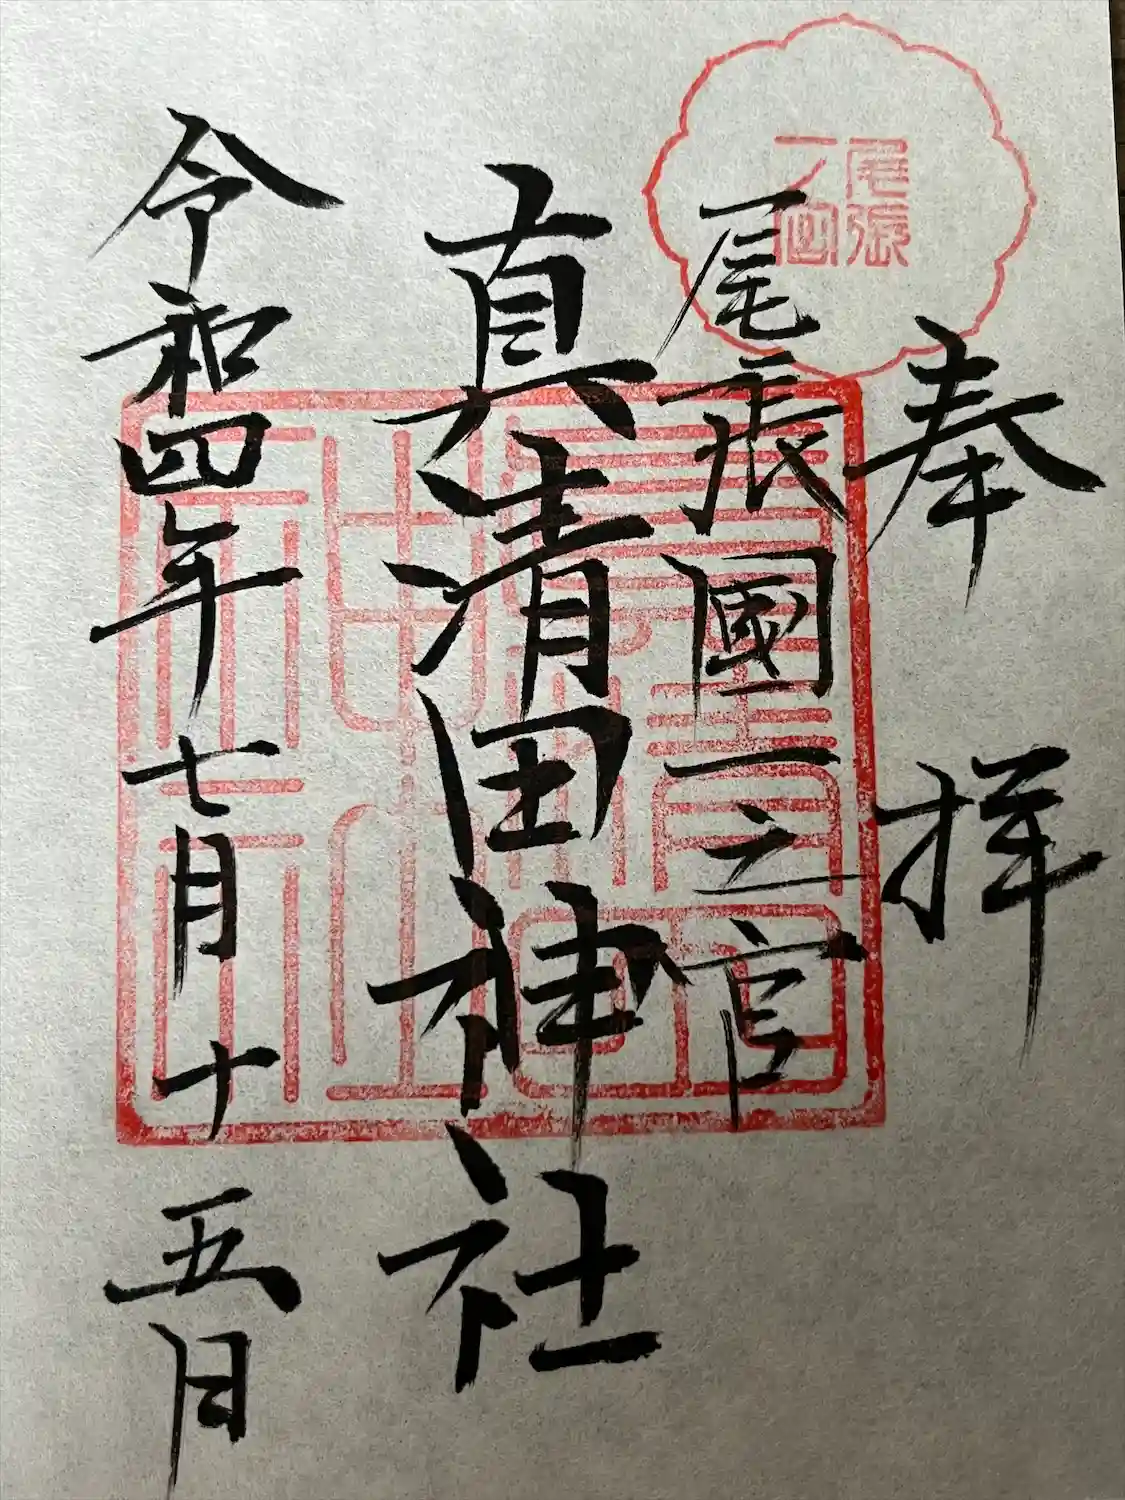 奉拝
尾張
一ノ宮
尾張國一之宮
真清田神社
真清田神社
令和四年七月十五日